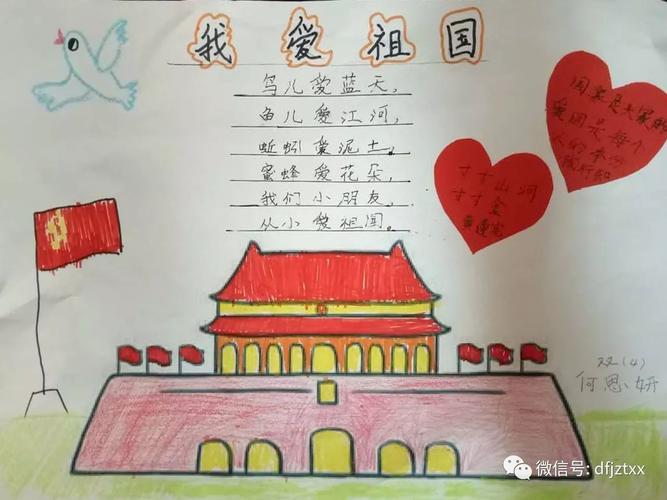 我爱祖国
鸟儿爱蓝天，
鱼儿爱江河，
蚯蚓爱泥土，
蜜蜂爱花朵，
我们小朋友，
从小爱祖国。
国家是大家的
爱国是每个
人的本分
陶行知
寸寸山河
寸寸金
黄遵宪
双(4)
何思妍
微信号: dfjztxx